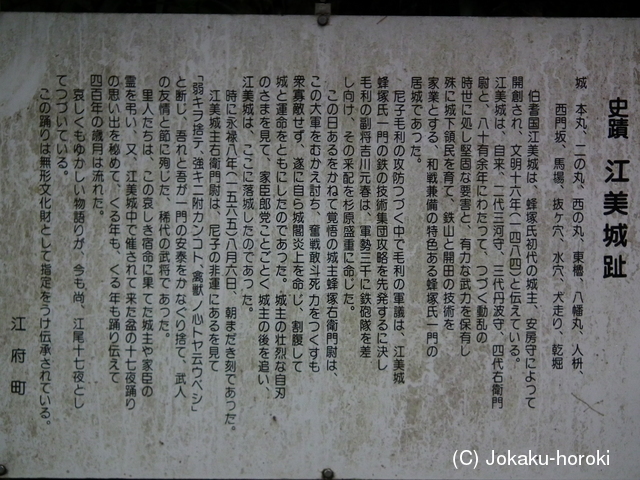 史蹟 江美城趾
城 本丸、二の丸、西の丸、東櫓、八幡丸、人枡、
西門坂、馬場、抜ケ穴、水穴、犬走り、乾堀
伯耆国江美城は、蜂塚氏初代の城主、安房守によって
開創され、文明十六年(一四八四)と伝えている。
江美城は、自来、二代三河守、三代丹波守、四代右衛門
尉と、八十有余年にわたって、つづく動乱の
時世に処し堅固な要害と、有力な武力を保有し
殊に城下領民を育て、鉄山と開田の技術を
家業とする、和戦兼備の特色ある蜂塚氏一門の
居城であった。
尼子毛利の攻防つづく中で毛利の軍議は、江美城
蜂塚氏一門の鉄の技術集団攻略を先発するに決し
毛利の副将吉川元春は、軍勢三千に鉄砲隊を差
し向け、その釆配を杉原盛重に命じた。
この日あるをかねて覚悟の城主蜂塚右衛門尉は、
この大軍をむかえ討ち、奮戦敢斗死力をつくすも
衆寡敵せず、遂に自ら城閣炎上を命じ、割腹して
城と運命をともにしたのであった。城主の壮烈な自刃
のさまを見て、家臣郎党ことごとく城主の後を追い、
江美城は、ここに落城したのであった。
時に永禄八年(一五六五)八月六日、朝まだき刻であった。
江美城主右衛門尉は、尼子の非運にあるを見て
「弱キヲ捨テ、強キニ附カンコト、禽獣ノ心トヤ云ウベシ」
と断じ、吾れと吾が一門の安泰をかなぐり捨て、武人
の友情と節に殉じた、稀代の武将であった。
里人たちは、この哀しき宿命に果てた城主や家臣の
霊を弔い、又、江美城中で催されて来た盆の十七夜踊り
の思い出を秘めて、くる年も、くる年も踊り伝えて
四百年の歳月は流れた。
哀しくもゆかしい物語りが、今も尚、江尾十七夜とし
てつづいている。
この踊りは無形文化財として指定をうけ伝承されている。
江府町
(C) Jokaku-horoki